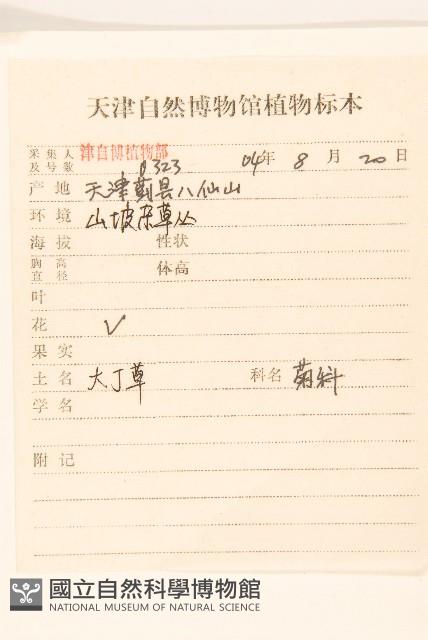 天津自然博物馆植物标本
采集人 津自博植物部
及号数 β323 04年 8 月 20 日
产地 天津蓟县八仙山
环境 山坡杂草丛
海拔 性状
胸高
直径 体高
叶
花 V
果实
土名 大丁草 科名 菊科
学名
附记
國立自然科學博物館
NATIONAL MUSEUM OF NATURAL SCIENCE